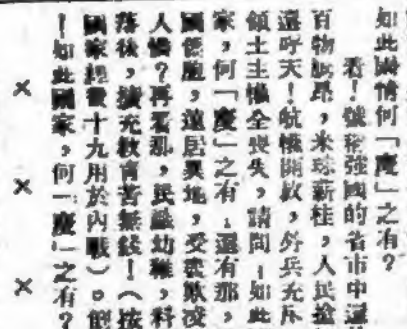 如此國情何「慶」之有?
看!號稱強國的省市中還
百物騰昂,米珠薪桂,人民
還呼天!航權開放,外兵充斥
領土主權全喪失,請問!如此
家,何「慶」之有!還有那,
國僑胞,遠居異地,受盡欺凌
人憐?再看亂,民飢幼,科
落後,擴充教育苦無錢!(按
國家經費十九用於內戰)。
!如此國家,何「慶」之有?
× × ×